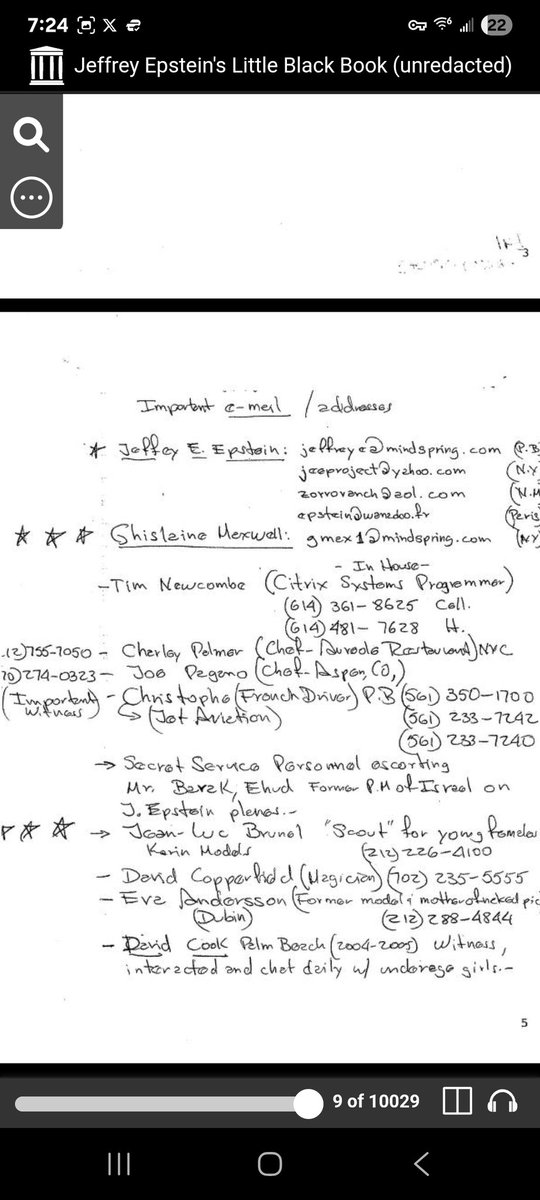 7:24
22
Jeffrey Epstein's Little Black Book (unredacted)
Important e-mail / addresses
* Jeffrey E. Epstein: jeffreye@mindspring.com (P.B
jeeproject@yahoo.com (N.Y
zorroranch@aol.com (N.M
epstein@wanadoo.fr (Paris
☆ ☆ ☆ Ghislaine Maxwell: gmax1@mindspring.com (NY
- In House -
- Tim Newcombe (Citrix Systems Programmer)
(614) 361-8625 Cell.
(614) 481-7628 H.
12) 755-7050 - Charley Palmer (Chef- Aureole Restaurant) NYC
70) 274-0323 - Joe Pagano (Chef- Aspen CO,)
(Important Witness) - Christophe (French Driver) P.B (561) 350-1700
(Jet Aviation) (561) 233-7242
(561) 233-7240
→ Secret Service Personnel escorting
Mr. Barak, Ehud Former P.M of Israel on
J. Epstein planes.-
☆ ☆ → Jean-Luc Brunel "Scout" for young females
Karin Models (212) 226-4100
- David Copperfield (Magician) (702) 235-5555
- Eva Andersson (Former model & mother of naked pic
(Dubin) (212) 288-4844
- David Cook Palm Beach (2004-2005) Witness,
interacted and chat daily w/ underage girls.-
5
9 of 10029